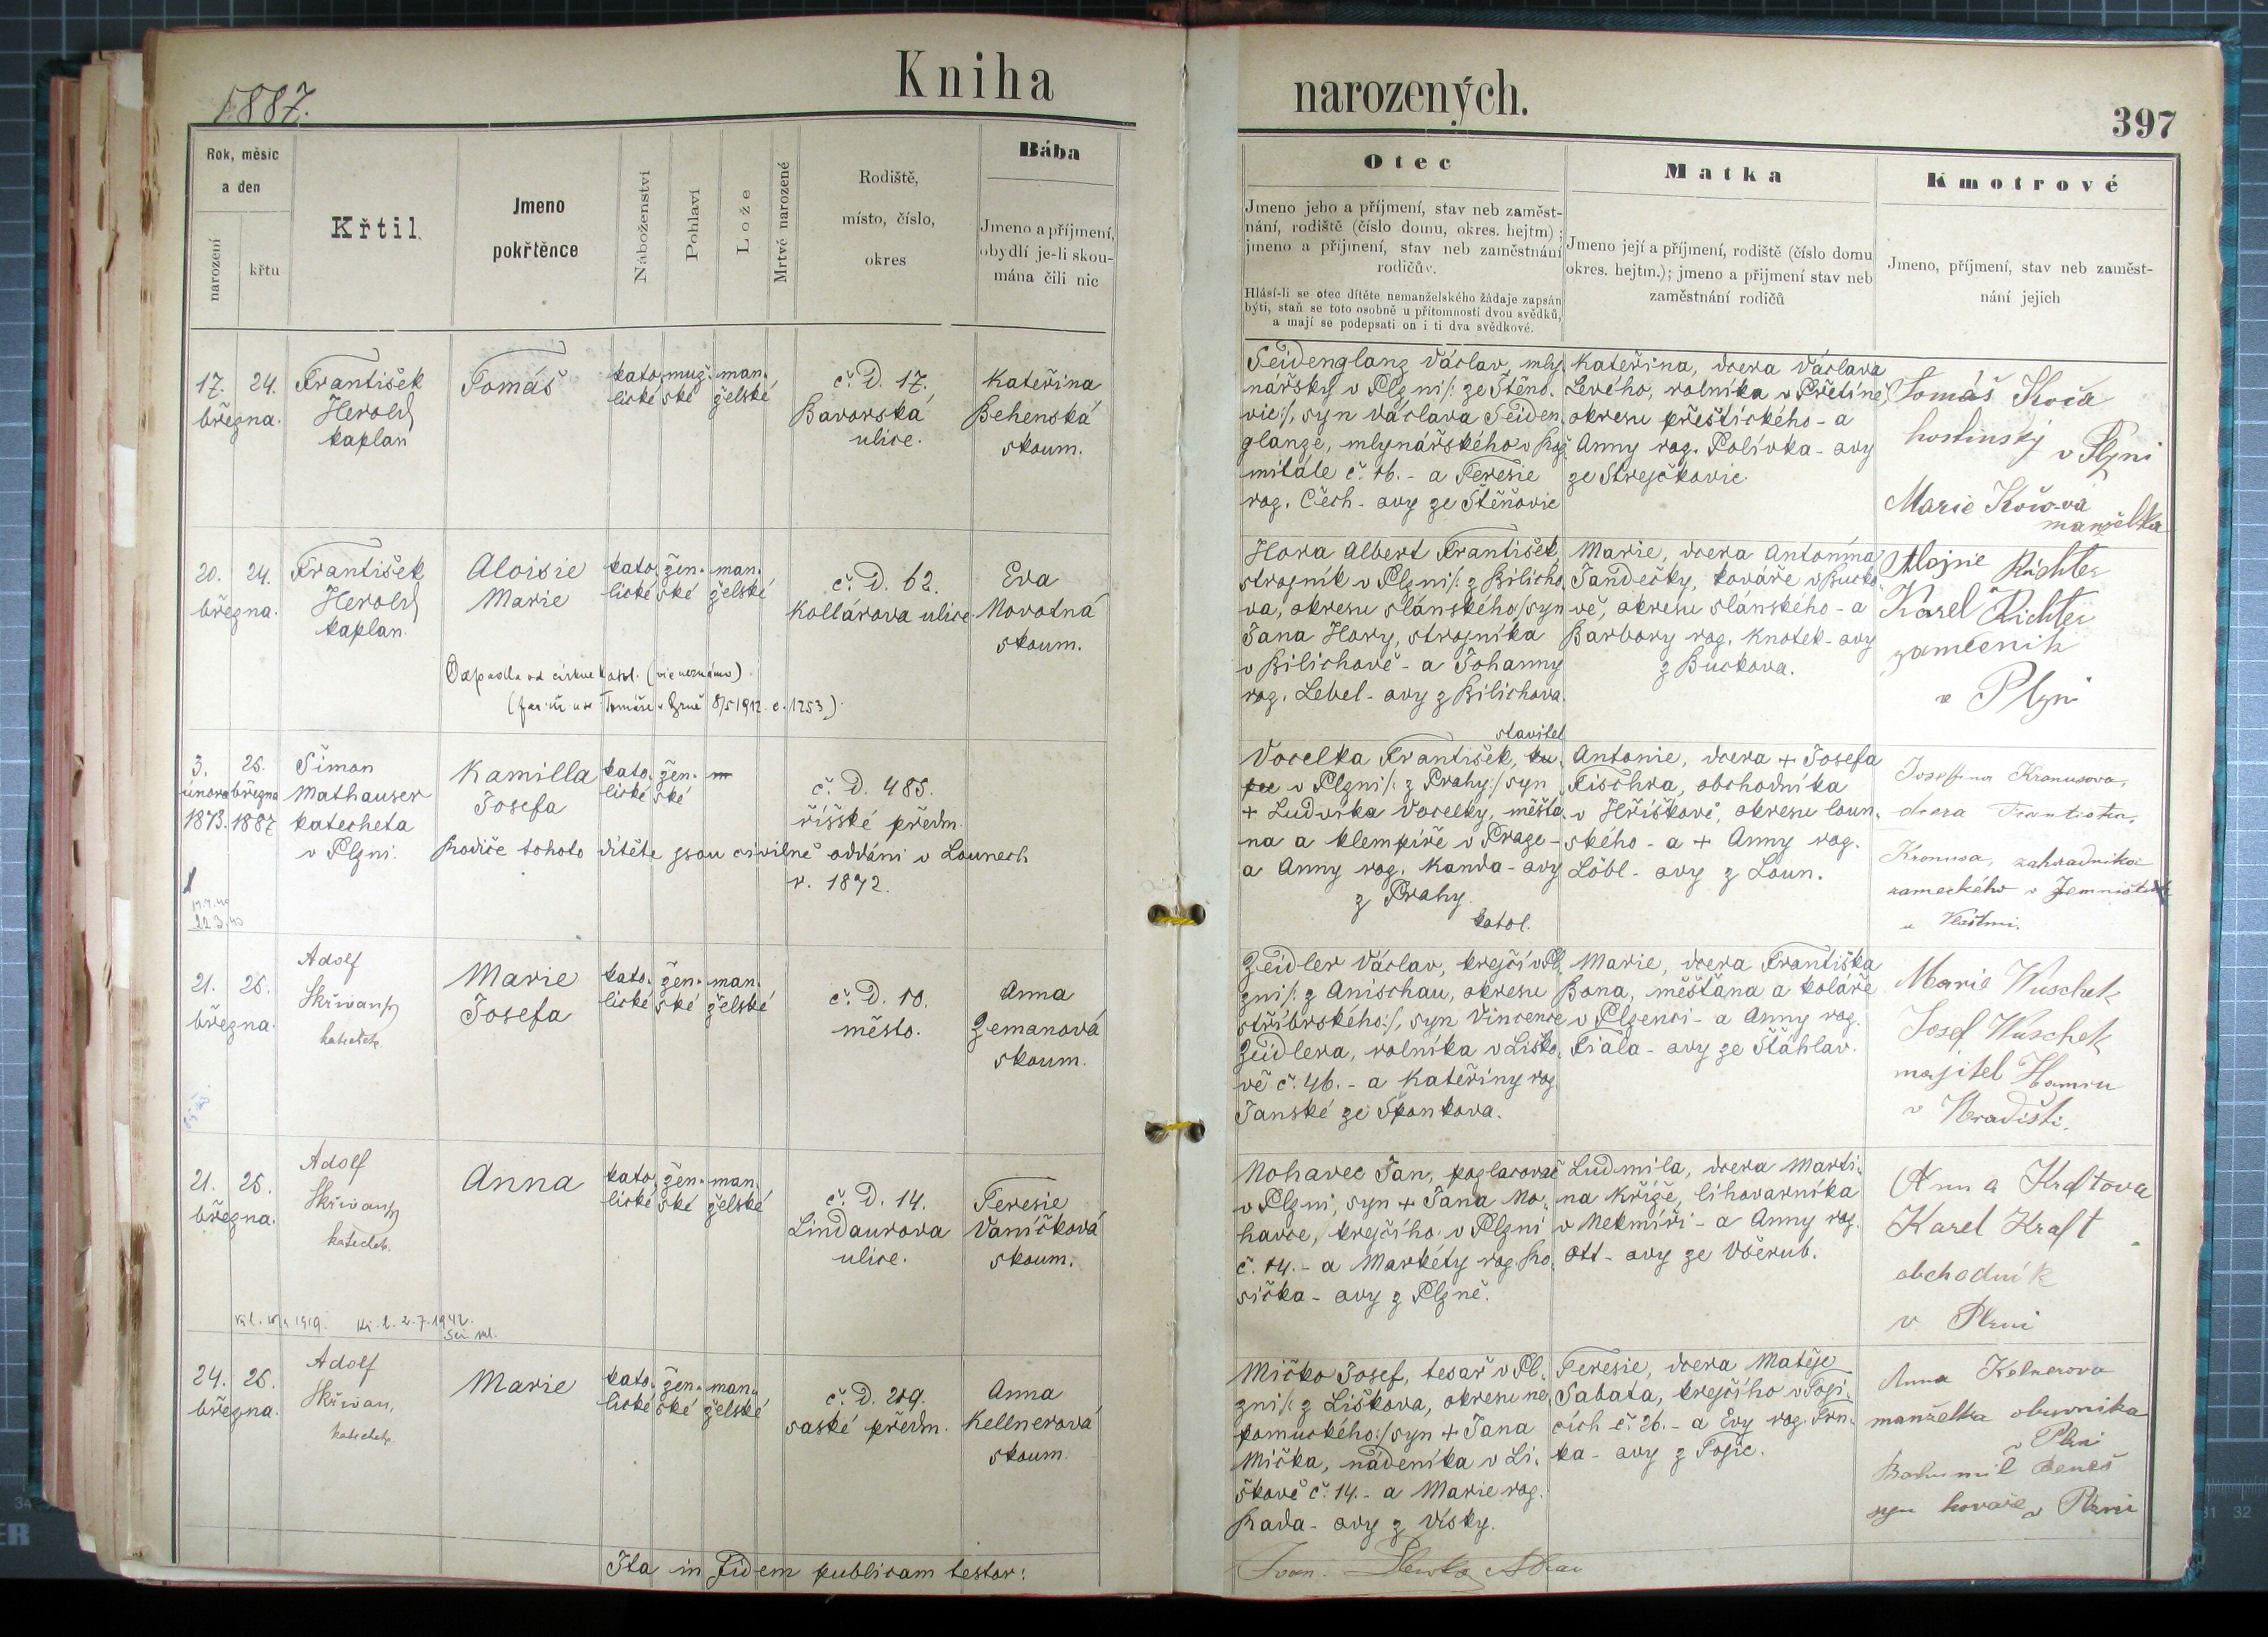 1887.
Kniha
narozených.
397
Rok, měsíc
a den
narození
křtu
Křtil
Jmeno
pokřtěnce
Náboženství
Pohlaví
Lože
Mrtvě narozené
Rodiště,
místo, číslo,
okres
Bába
Jmeno a příjmení,
obydlí je-li skou-
mána čili nic
Otec
Jmeno jeho a příjmení, stav neb zaměst-
nání, rodiště (číslo domu, okres. hejtm) ;
jmeno a příjmení, stav neb zaměstnání
rodičův.
Hlásí-li se otec dítěte nemanželského žádaje zapsán
býti, staň se toto osobně u přítomnosti dvou svědků,
a mají se podepsati on i ti dva svědkové.
Matka
Jmeno její a příjmení, rodiště (číslo domu
okres. hejtm.); jmeno a příjmení stav neb
zaměstnání rodičů
Kmotrové
Jmeno, příjmení, stav neb zaměst-
nání jejich
17. 24.
března.
František
Herold
kaplan
Tomáš
kato. muž. man.
lické ské želské
č. D. 17.
Bavorská
ulice.
Kateřina
Behenská
skoum.
Seidenglanz Václav, mly.
nářský v Plzni /: ze Štěno.
vic :/, syn Václava Seiden.
glanze, mlynářského v Rož.
mitále č. 16. - a Terezie
roz. Čech - ovy ze Štěňovic
Kateřina, dcera Václava
Levého, rolníka v Přetíně,
okresu přeštického - a
Anny roz. Polívka - ovy
ze Strejčkovic
Tomáš Koča
hostinský
v Plzni
Marie Kočova
manželka
20. 24.
března.
František
Herold
kaplan.
Aloisie
Marie
kato. žen. man.
lické ské želské
č. D. 62.
Kollárova ulice.
Eva
Novotná
skoum.
Odpadla od církve katol. (víc neznámo)
8/5 1912 č. 1253)
Hora Albert František,
strojník v Plzni /: z Bilicho.
va, okresu slánského :/ syn
Jana Hory, strojníka
v Bilichově - a Johanny
roz. Lebel - ovy z Bilichova.
Marie, dcera Antonína
Jandečky, kováře v Bucko
vě, okresu slánského - a
Barbory roz. Knotek - ovy
z Buckova.
Richter
Karel Richter
zámečník
v Plzni
3. 25.
února března
1873. 1887
Šimon
Mathauser
katecheta
v Plzni.
Kamilla
Josefa
kato. žen. m
lické ské
č. D. 485.
říšské předm.
Rodiče tohoto dítěte jsou civilně oddáni v Lounech
r. 1872.
22.3.40
stavitel
Vocelka František, ku.
pec v Plzni /: z Prahy :/ syn
+ Ludvíka Vocelky, měšťa.
na a klempíře v Praze -
a Anny roz. Kanda - ovy
z Prahy.
katol.
Antonie, dcera + Josefa
Fischra, obchodníka
v Hříškově, okresu loun.
ského - a + Anny roz.
Löbl - ovy z Loun.
Josefina Kronusova,
dcera Františka
Kronusa, zahradníka
zámeckého v Jemništi
u Vlašimi.
21. 25.
března.
Adolf
Skřivan
katechet.
Marie
Josefa
kato. žen. man.
lické ské želské
č. D. 10.
město.
Anna
Zemanová
skoum.
Zeidler Václav, krejčí v Pl.
zni /: z Anischau, okresu
stříbrského :/, syn Vincence
Zeidlera, rolníka v Liško.
vě č. 46. - a Kateřiny roz.
Janské ze Špankova.
Marie, dcera Františka
Bona, měšťana a koláře
v Plzenci - a Anny roz.
Fiala - ovy ze Šťáhlav.
Marie Wuschek
Josef Wuschek
majitel Hamru
v Hradišti.
21. 25.
března.
Adolf
Skřivan
katechet.
Anna
kato. žen. man.
lické ské želské
č. D. 14.
Lindaurova
ulice.
Terezie
Vaníčková
skoum.
2.7.1942.
Nohavec Jan, pozlacovač
v Plzni, syn + Jana No.
havce, krejčího v Plzni
č. 14. - a Markéty roz. Ko.
sička - ovy z Plzně.
Ludmila, dcera Marti.
na Kříže, lihovarníka
v Nekmíři - a Anny roz.
Ott - ovy ze Všerub.
Anna Kraftova
Karel Kraft
obchodník
v Plzni
24. 25.
března.
Adolf
Skřivan,
katechet.
Marie
kato. žen. man.
lické ské želské
č. D. 219.
saské předm.
Anna
Kellnerová
skoum.
Mičko Josef, tesař v Pl.
zni /: z Liškova, okresu ne.
pomuckého :/ syn + Jana
Mička, nádeníka v Li.
škově č. 14. - a Marie roz.
Kada - ovy z Vísky.
Terezie, dcera Matěje
Sabata, krejčího v Foji.
cích č. 26. - a Evy roz. Trn.
ka - ovy z Fojic.
Anna Kelnerova
manželka obuvníka
v Plzni
Bohumil Beneš
syn kováře v Plzni
Ita in fidem publicam testor: